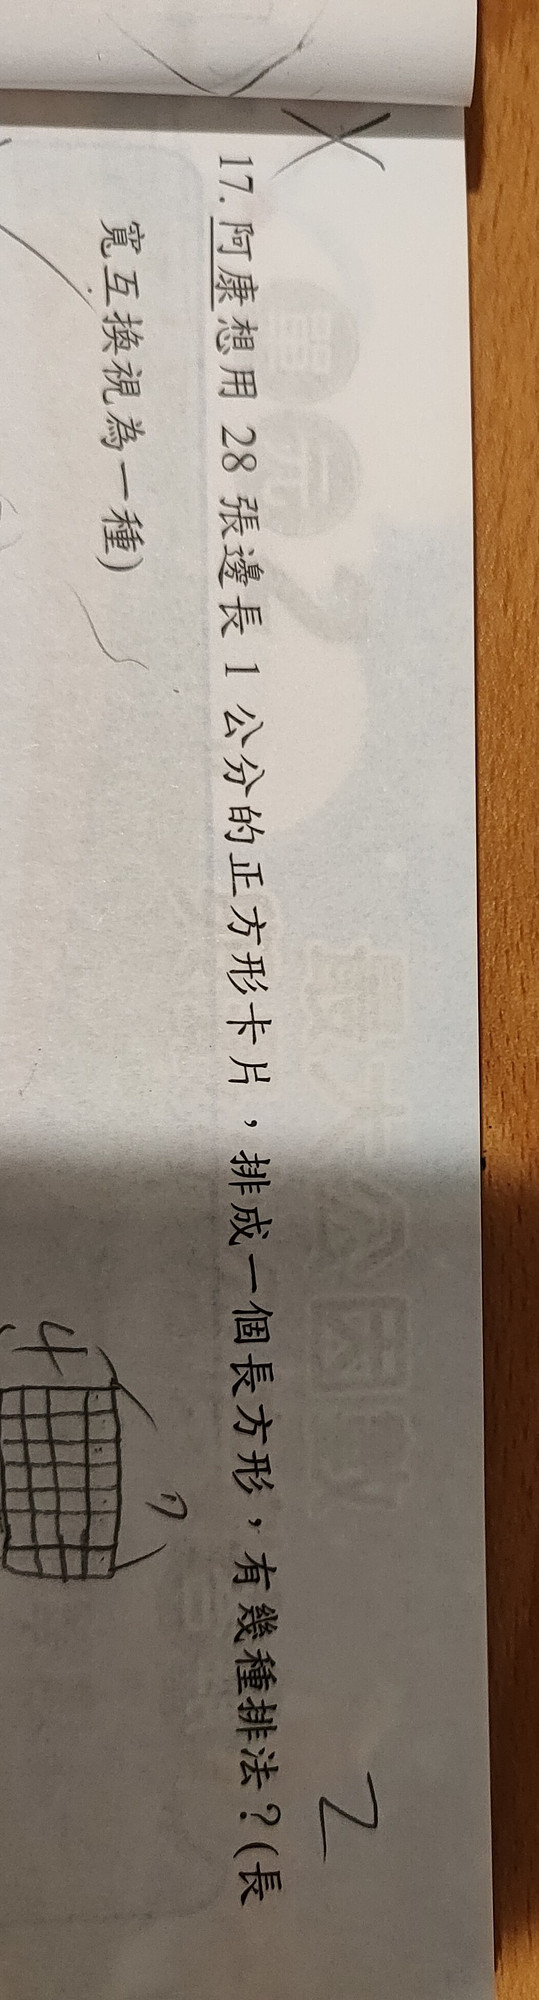 17. 阿康想用 28 張邊長 1 公分的正方形卡片，排成一個長方形，有幾種排法？(長
寬互換視為一種)
2
7
4